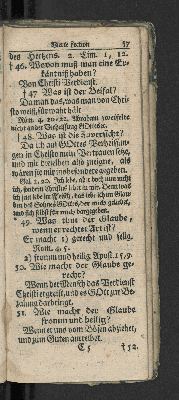 Vierte Lection 57
des Hertzens. 2. Tim. 1, 12.
† 46. Wovon muß man eine Er-
käntniß haben?
Von Christi Verdienst.
† 47 Was ist der Beifal?
Da man das, was man von Chri-
sto weiß, für wahr hält
Rom. 4. 20-22. Abraham zweifelte
nicht an der Verheissung Gottes
† 48. Was ist die Zuversicht?
Da ich auf GOttes Verheissun-
gen in Christo mein Vertrauen setze,
und mir dieselben also zueigne, als
wären sie mir insonderheit gegeben.
Gal. 2, 20. Ich lebe, aber doch nun nicht
ich, sondern Christus lebet in mir. Denn was
ich jetzt lebe im Fleisch, das lebe ich im Glauben
des Sohnes GOttes, der mich geliebet,
und sich selbst für mich dargegeben.
49. Was thut der Glaube,
wenn er rechter Art ist?
Er macht 1) gerecht und selig.
Rom. 4, 5.
2) fromm und heilig Apost. 15, 9.
50. Wie macht der Glaube ge-
recht?
Wenn der Mensch das Verdienst
Christi ergreift, und es GOtt zur Be-
zahlung darbringt.
51. Wie macht der Glaube
fromm und heilig?
Wenn er uns vom Bösen abziehet,
und zum Guten antreibet.
C 5 † 52.